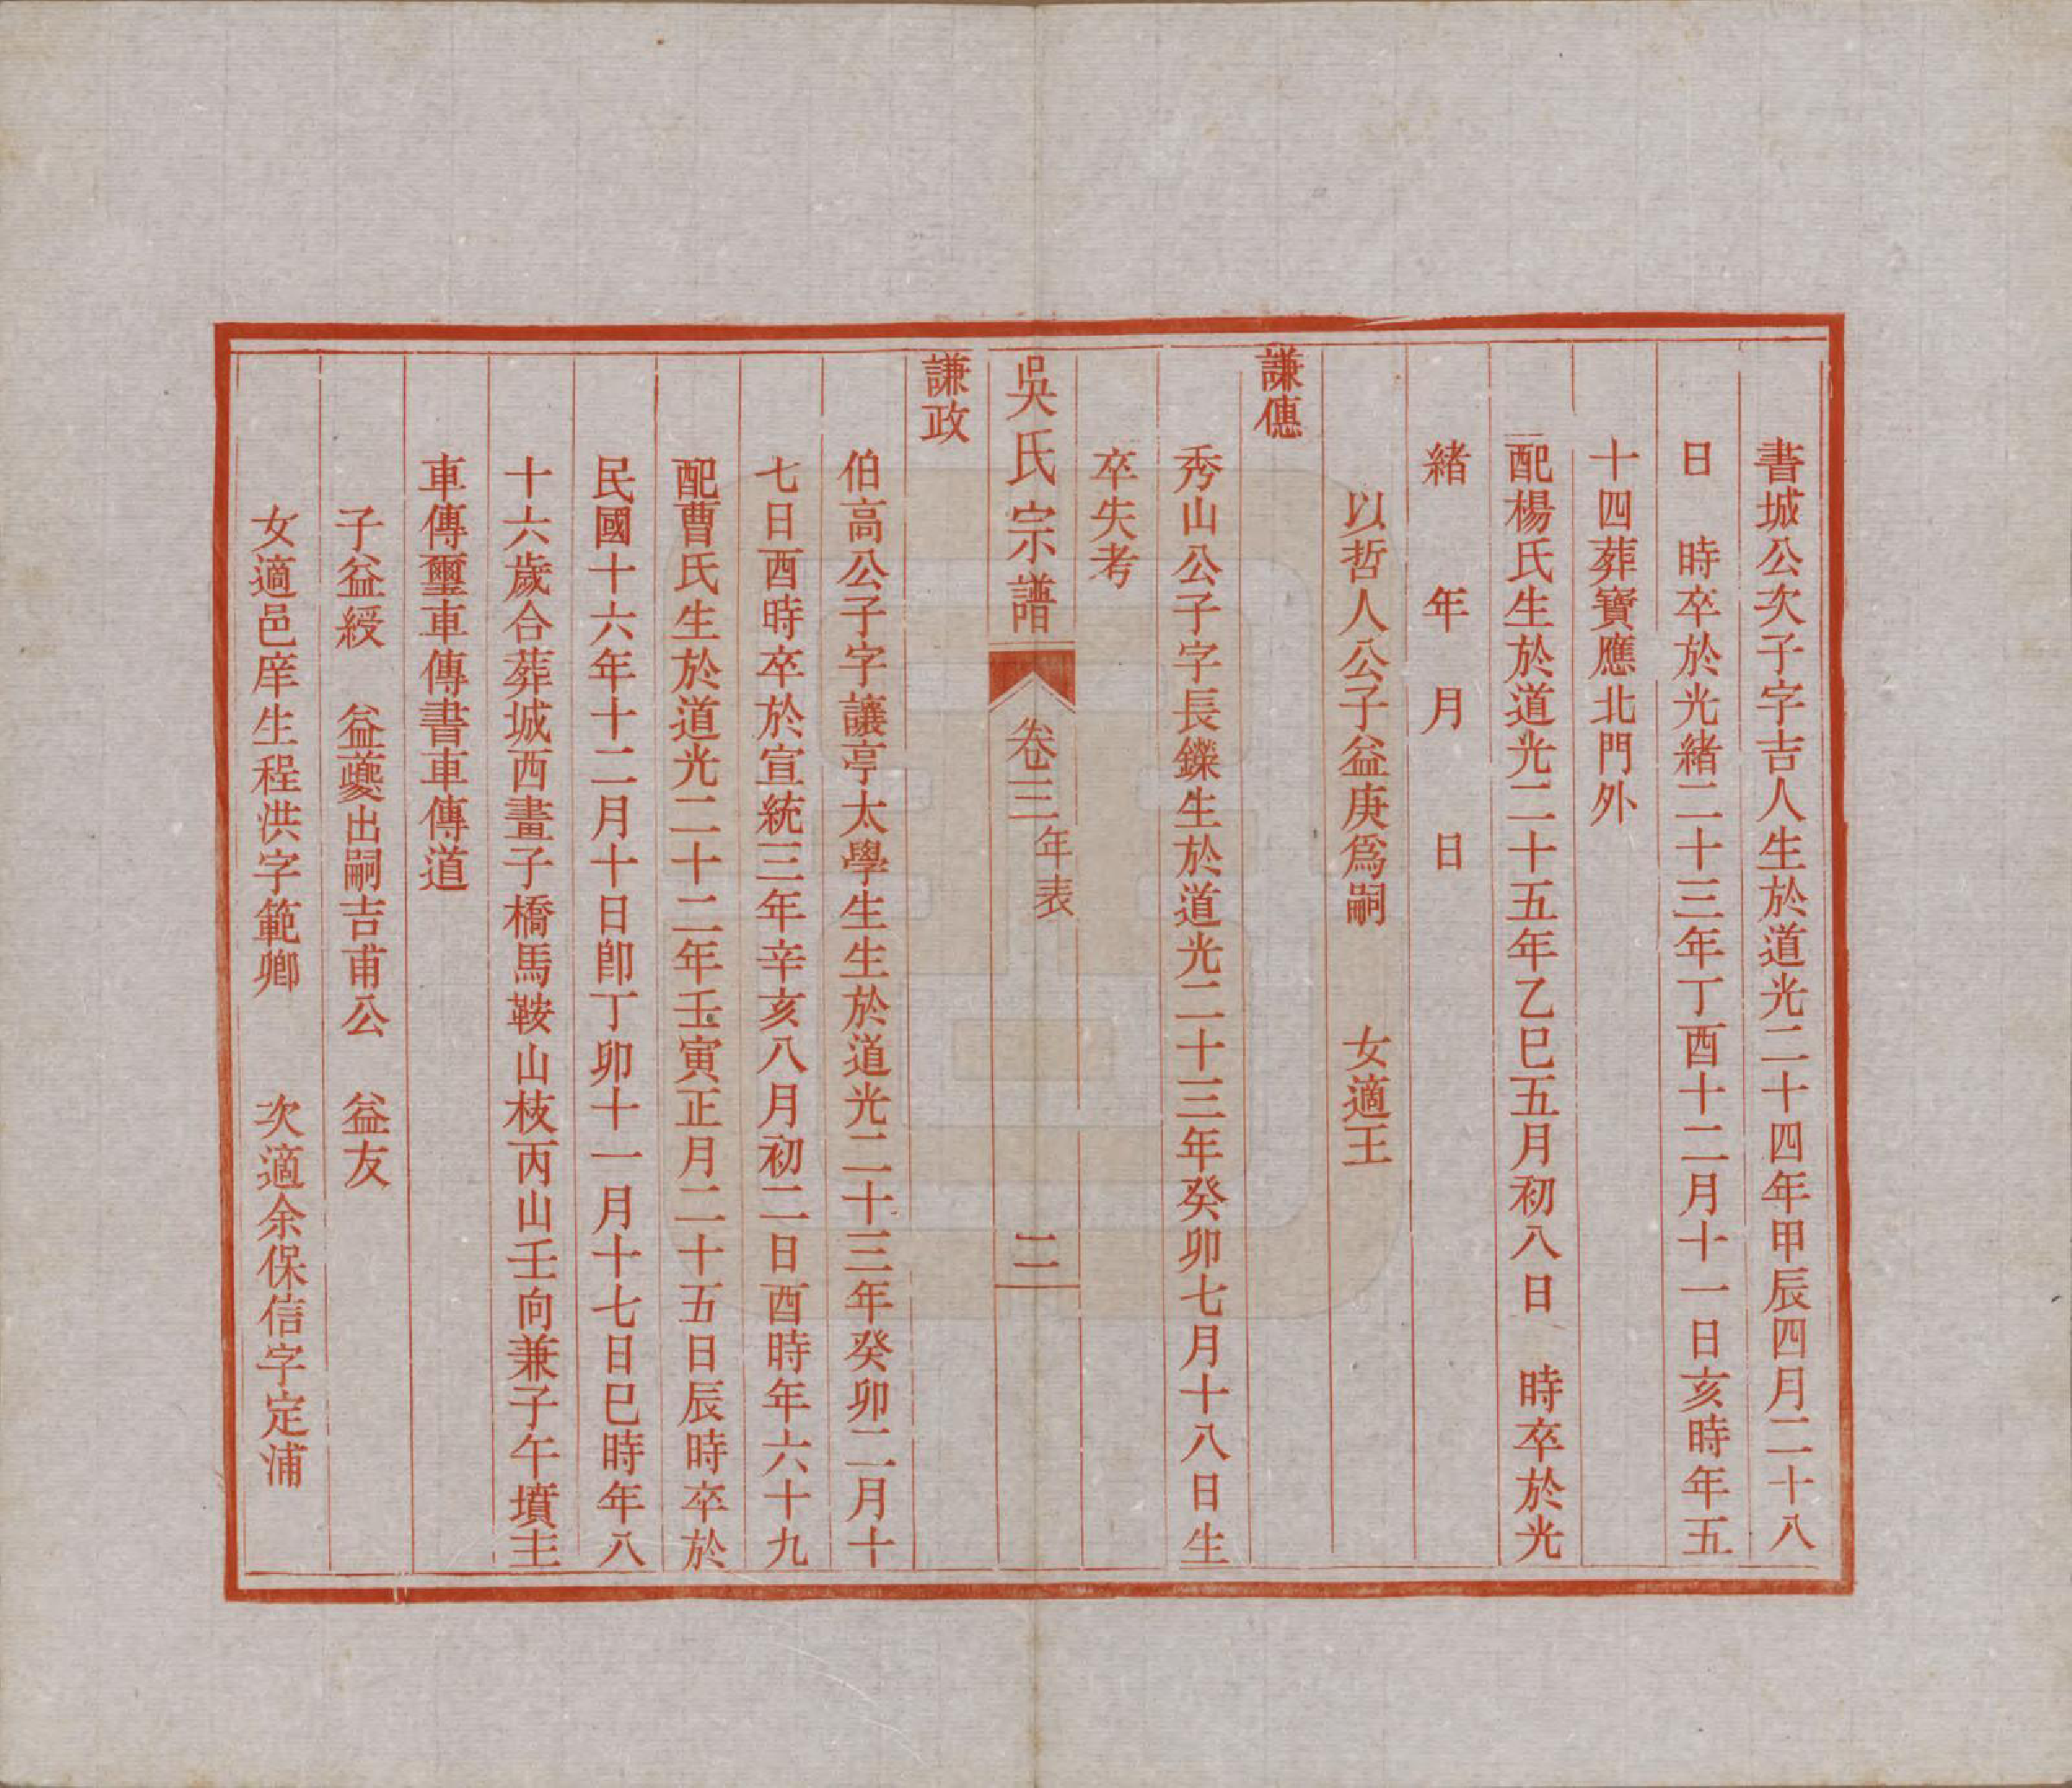 書城公次子字吉人生於道光二十四年甲辰四月二十八
日　時卒於光緒二十三年丁酉十二月十一日亥時年五
十四葬寶應北門外
配楊氏生於道光二十五年乙巳五月初八日　時卒於光
緒　年　月　日
以哲人公子益庚爲嗣　女適王
謙僡
秀山公子字長鑠生於道光二十三年癸卯七月十八日生
卒失考
吳氏宗譜　卷三　年表　二
謙政
伯高公子字讓亭太學生生於道光二十三年癸卯二月十
七日酉時卒於宣統三年辛亥八月初二日酉時年六十九
配曹氏生於道光二十二年壬寅正月二十五日辰時卒於
民國十六年十二月十日卽丁卯十一月十七日巳時年八
十六歲合葬城西畫子橋馬鞍山枝丙山壬向兼子午墳主
車傳璽車傳書車傳道
子益綬　益夔出嗣吉甫公　益友
女適邑庠生程洪字範卿　次適余保信字定浦